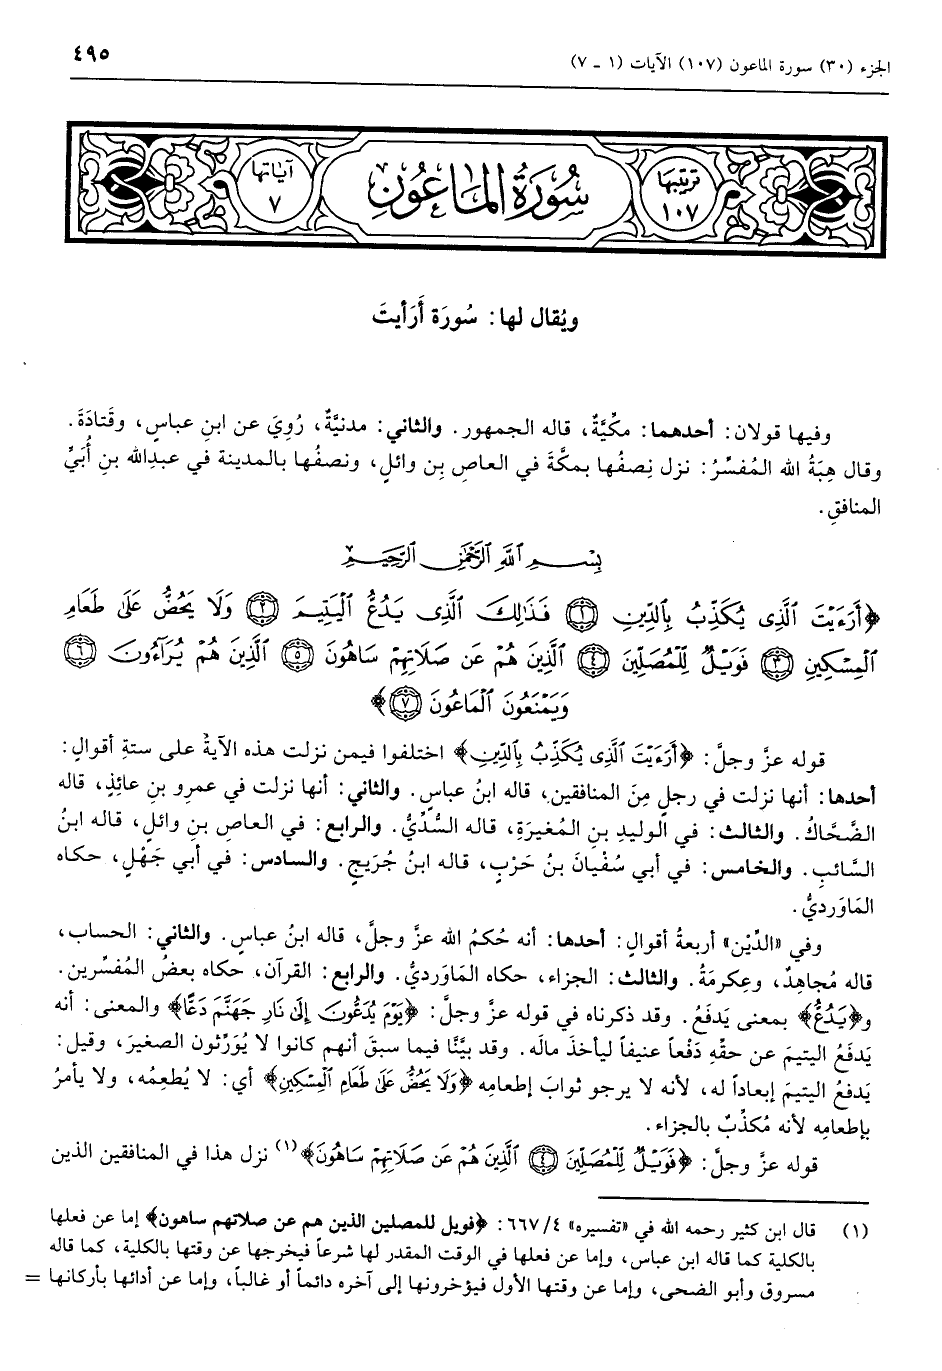 الجزء (٣٠) سورة الماعون (١٠٧) الآيات (١ ـ ٧)
٤٩٥
ترتيبها ١٠٧
سُورَةُ المَاعُونِ
آياتها ٧
ويُقال لها: سُورَة أَرَأيتَ
وفيها قولان: أحدهما: مكِّيَّةٌ، قاله الجمهور. والثاني: مدنيَّةٌ، رُوِيَ عن ابنِ عباسٍ، وقَتادَةَ.
وقال هِبَةُ الله المُفسِّرُ: نزل نِصفُها بمكَّةَ في العاصِ بِن وائلٍ، ونصفُها بالمدينة في عبدِالله بنِ أُبَيٍّ
المنافقِ.
بِسْمِ ٱللَّهِ ٱلرَّحْمَٰنِ ٱلرَّحِيمِ
﴿أَرَءَيْتَ ٱلَّذِى يُكَذِّبُ بِٱلدِّينِ ۝١ فَذَٰلِكَ ٱلَّذِى يَدُعُّ ٱلْيَتِيمَ ۝٢ وَلَا يَحُضُّ عَلَىٰ طَعَامِ
ٱلْمِسْكِينِ ۝٣ فَوَيْلٌ لِّلْمُصَلِّينَ ۝٤ ٱلَّذِينَ هُمْ عَن صَلَاتِهِمْ سَاهُونَ ۝٥ ٱلَّذِينَ هُمْ يُرَآءُونَ ۝٦
وَيَمْنَعُونَ ٱلْمَاعُونَ ۝٧﴾
قوله عزَّ وجلَّ: ﴿أَرَءَيْتَ ٱلَّذِى يُكَذِّبُ بِٱلدِّينِ﴾ اختلفوا فيمن نزلت هذه الآيةُ على ستةِ أقوالٍ:
أحدها: أنها نزلت في رجلٍ مِنَ المنافقين، قاله ابنُ عباسٍ. والثاني: أنها نزلت في عمرِو بنِ عائِذٍ، قاله
الضَّحَّاكُ. والثالث: في الوليدِ بنِ المُغيرَةِ، قاله السُّدِّيُّ. والرابع: في العاصِ بنِ وائلٍ، قاله ابنُ
السَّائبِ. والخامس: في أبي سُفْيانَ بنُ حَرْبٍ، قاله ابنُ جُريجٍ. والسادس: في أبي جَهْلٍ، حكاه
المَاوَرديُّ.
وفي «الدِّيْن» أربعةُ أقوالٍ: أحدها: أنه حُكمُ الله عزَّ وجلَّ، قاله ابنُ عباسٍ. والثاني: الحساب،
قاله مُجاهدٌ، وعِكرمَةُ. والثالث: الجزاء، حكاه المَاوَرديُّ. والرابع: القرآن، حكاه بعضُ المُفسِّرين.
و﴿يَدُعُّ﴾ بمعنى يَدفَعُ. وقد ذكرناه في قوله عزَّ وجلَّ: ﴿يَوْمَ يُدَعُّونَ إِلَىٰ نَارِ جَهَنَّمَ دَعًّا﴾ والمعنى: أنه
يَدفَعُ اليتيمَ عن حقِّهِ دَفْعاً عنيفاً ليأخذَ مالَه. وقد بيَّنَّا فيما سبقَ أنهم كانوا لا يُوَرِّثون الصغيرَ، وقيل:
يَدفعُ اليتيمَ إبعاداً له، لأنه لا يرجو ثوابَ إطعامِه ﴿وَلَا يَحُضُّ عَلَىٰ طَعَامِ ٱلْمِسْكِينِ﴾ أي: لا يُطعِمُه، ولا يأمرُ
بإطعامِه لأنه مُكذِّبٌ بالجزاء.
قوله عزَّ وجلَّ: ﴿فَوَيْلٌ لِّلْمُصَلِّينَ ۝٤ ٱلَّذِينَ هُمْ عَن صَلَاتِهِمْ سَاهُونَ﴾(١) نزل هذا في المنافقين الذين
(١) قال ابن كثير رحمه الله في «تفسيره» ٤/ ٦٦٧: ﴿فويل للمصلين الذين هم عن صلاتهم ساهون﴾ إما عن فعلها
بالكلية كما قاله ابن عباس، وإما عن فعلها في الوقت المقدر لها شرعاً فيخرجها عن وقتها بالكلية، كما قاله
مسروق وأبو الضحى، وإما عن وقتها الأول فيؤخرونها إلى آخره دائماً أو غالباً، وإما عن أدائها بأركانها =